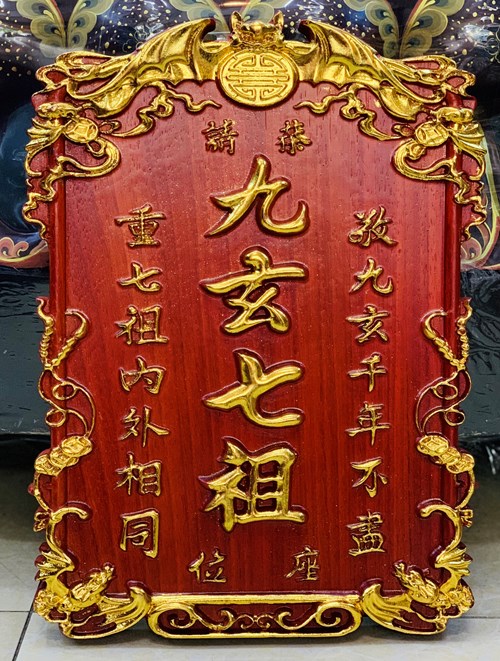 恭請
敬九玄千年不盡
九玄七祖
重七祖內外相同
座位